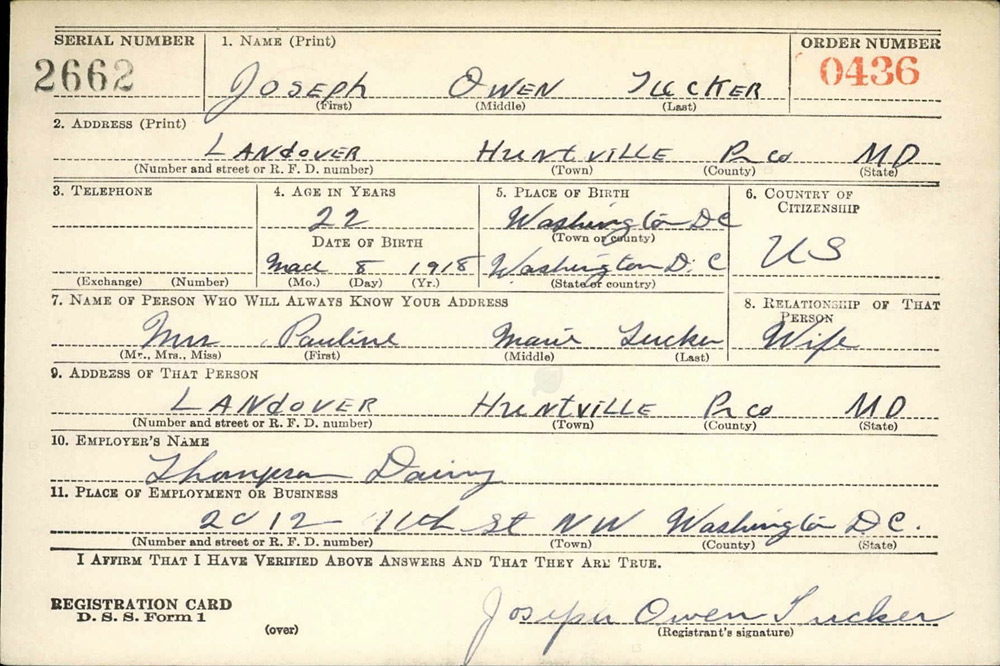 SERIAL NUMBER 1. NAME (Print) ORDER NUMBER
2662 JOSEPH OWEN TUCKER 0436
(First) (Middle) (Last)
2. ADDRESS (Print)
LANDOVER HUNTVILLE Pr co MD
(Number and street or R. F. D. number) (Town) (County) (State)
3. TELEPHONE 4. AGE IN YEARS 5. PLACE OF BIRTH 6. COUNTRY OF CITIZENSHIP
22 Washington DC
(Town or county)
DATE OF BIRTH US
8 1918 Washington D. C
(Exchange) (Number) (Mo.) (Day) (Yr.) (State or country)
7. NAME OF PERSON WHO WILL ALWAYS KNOW YOUR ADDRESS 8. RELATIONSHIP OF THAT PERSON
Mrs Pauline Marie Tucker Wife
(Mr., Mrs., Miss) (First) (Middle) (Last)
9. ADDRESS OF THAT PERSON
LANDOVER HUNTVILLE Pr co MD
(Number and street or R. F. D. number) (Town) (County) (State)
10. EMPLOYER'S NAME
Thompson Dairy
11. PLACE OF EMPLOYMENT OR BUSINESS
2012 11th St NW Washington DC.
(Number and street or R. F. D. number) (Town) (County) (State)
I AFFIRM THAT I HAVE VERIFIED ABOVE ANSWERS AND THAT THEY ARE TRUE.
REGISTRATION CARD
D. S. S. Form 1 Joseph Owen Tucker
(over) (Registrant's signature)